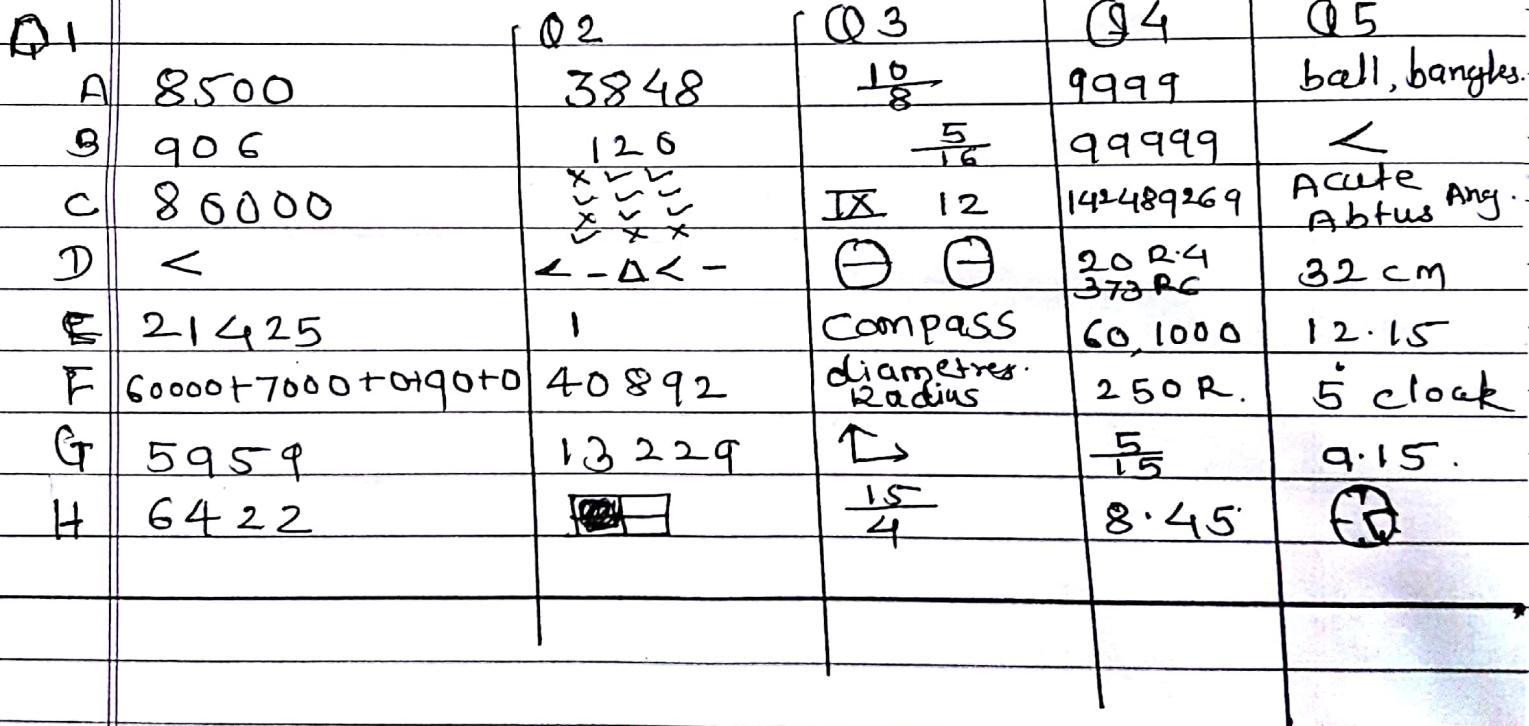 Q1 Q2 Q3 Q4 Q5
A 8500 3848 10/8 9999 ball, bangles.
B 906 126 5/16 99999 <
C 86000 × ✓ ✓ ✓ ✓ ✓ × ✓ ✓ ✓ × × IX 12 142489269 Acute Abtus Ang.
D < < - Δ < - ⊖ ⊖ 20 R.4 373 R6 32 cm
E 21425 1 Compass 60, 1000 12.15
F 60000+7000+0+90+0 40892 diametres. Radius 250 R. 5 cloak
G 5959 13229 5/15 9.15.
H 6422 15/4 8.45